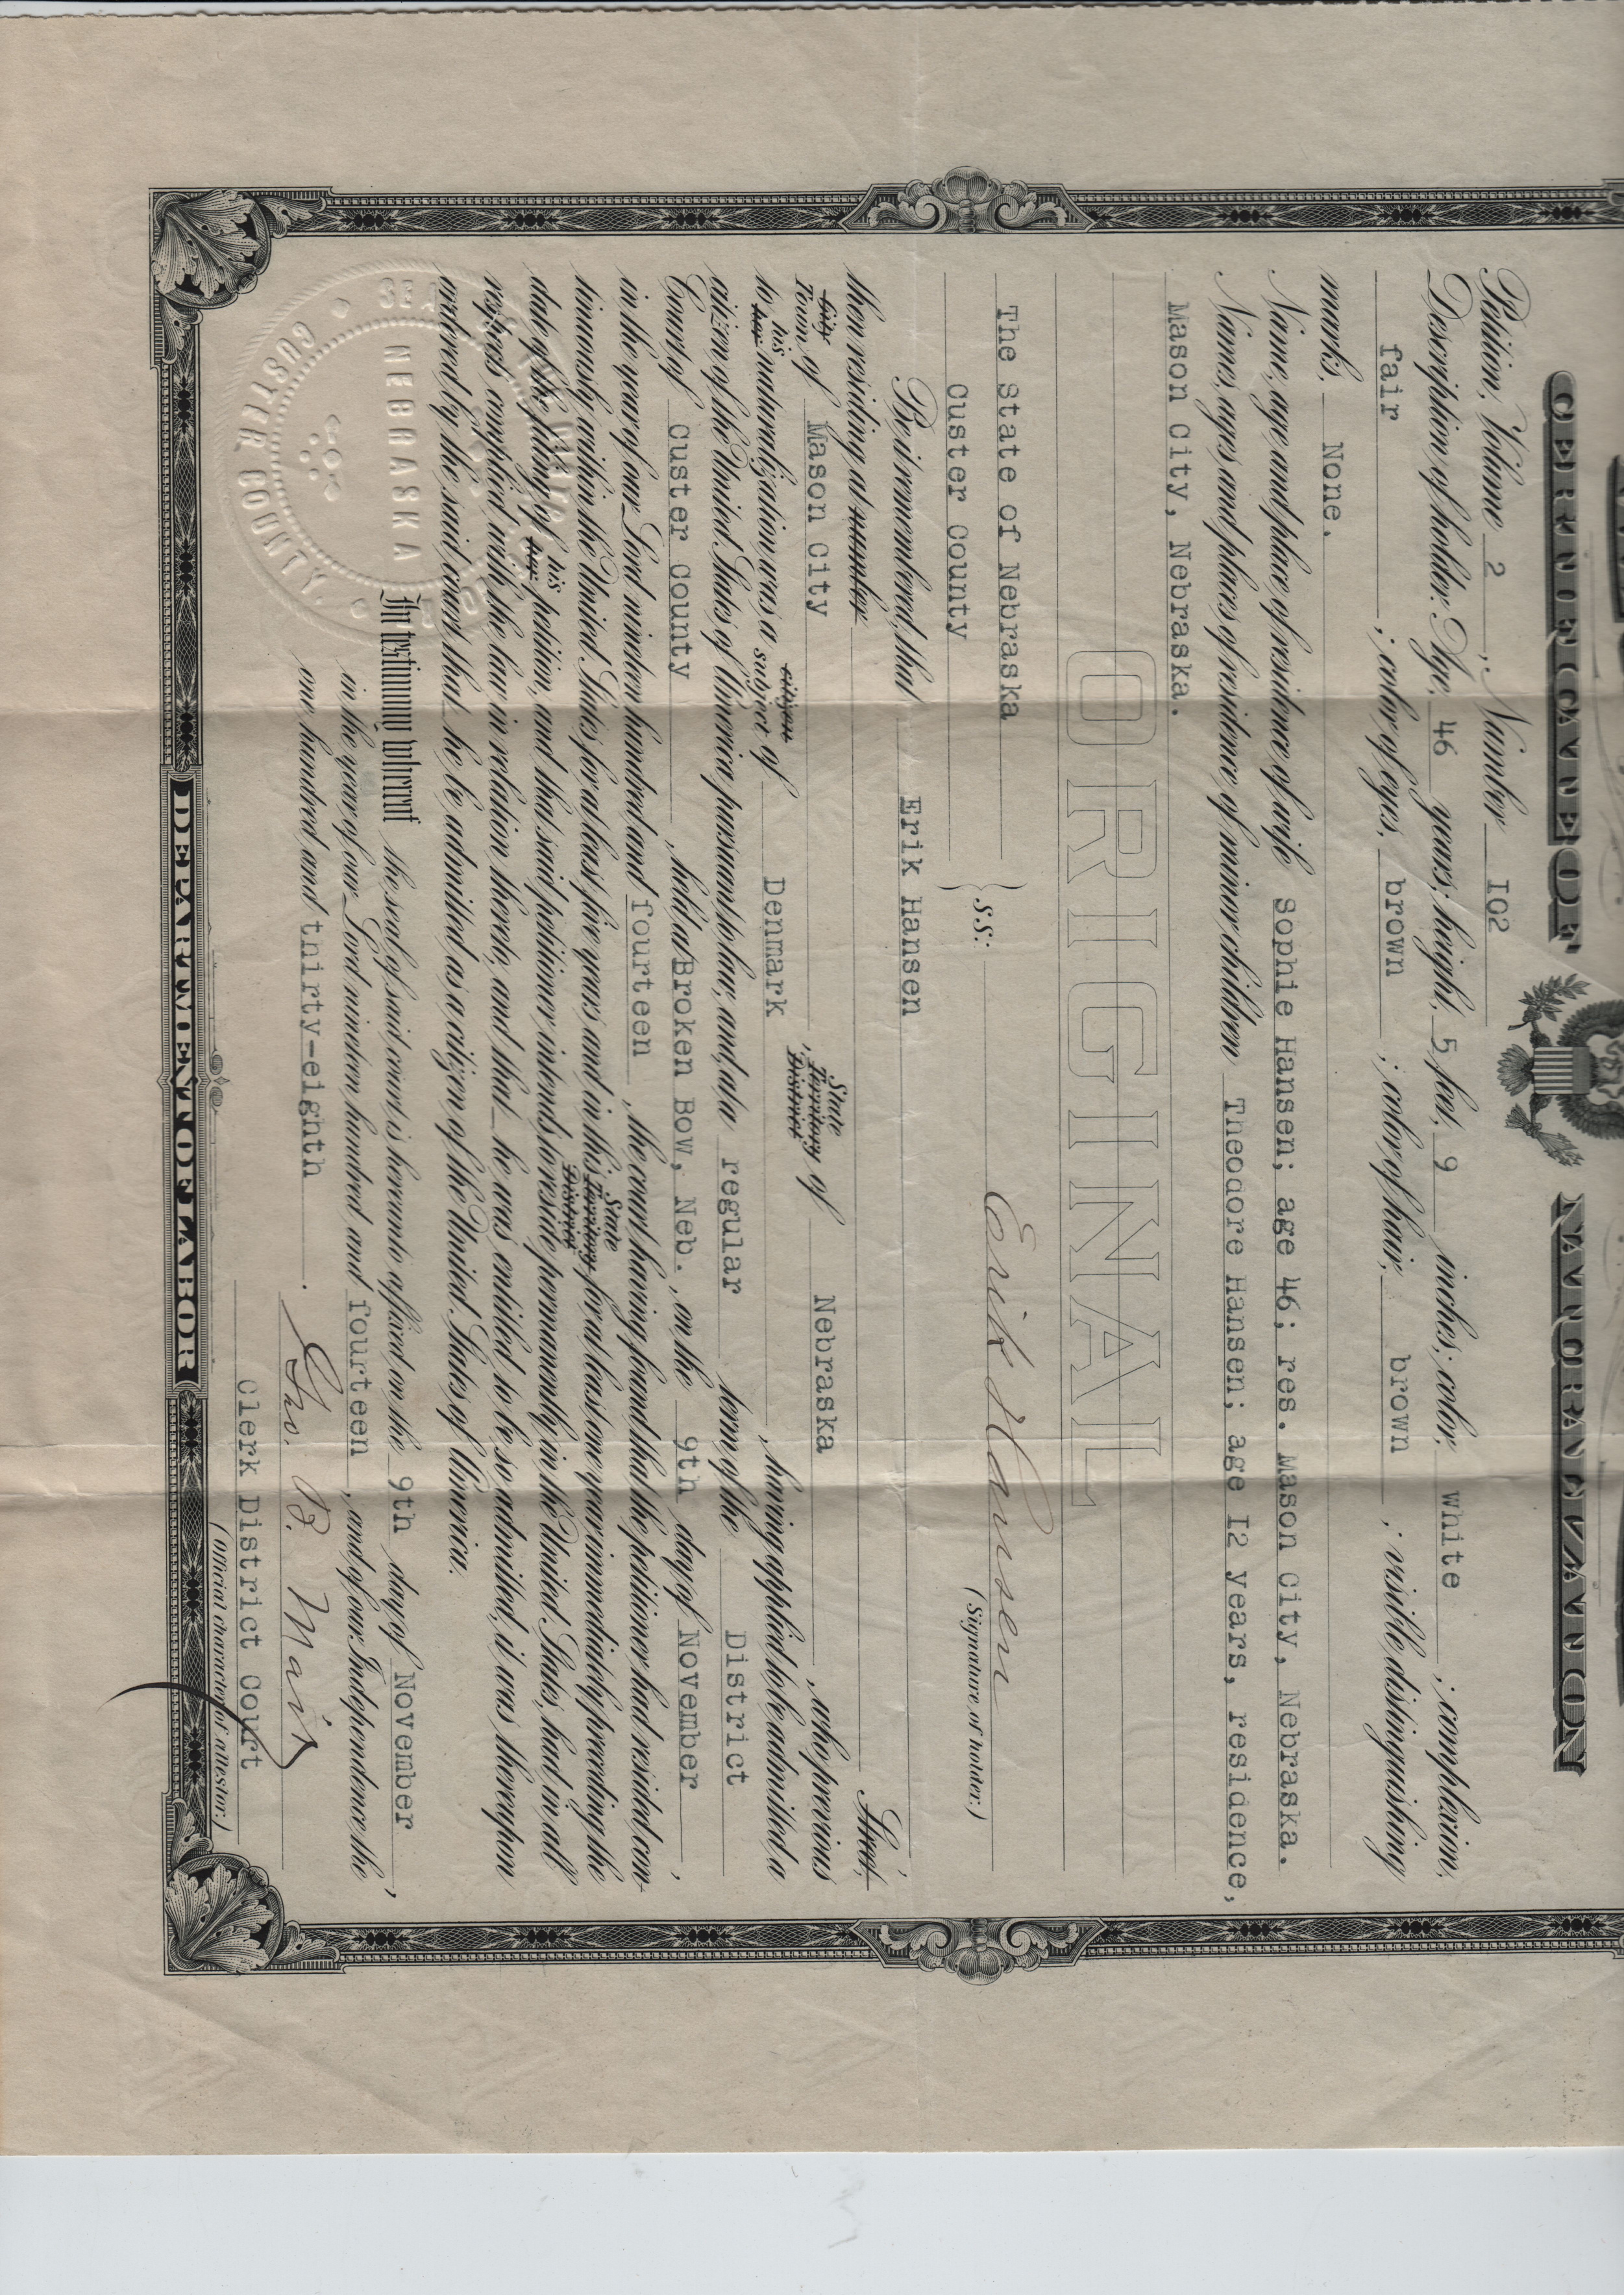 CERTIFICATE OF NATURALIZATION
Petition, Volume 2, Number I02
Description of holder: Age, 46 years; height, 5 feet, 9 inches; color, white; complexion,
fair; color of eyes, brown; color of hair, brown; visible distinguishing
marks, None.
Name, age and place of residence of wife Sophie Hansen; age 46; res. Mason City, Nebraska.
Names, ages and places of residence of minor children Theodore Hansen; age I2 years, residence,
Mason City, Nebraska.
ORIGINAL
The State of Nebraska
Custer County } s.s: Erik Hansen
(Signature of holder.)
Be it remembered, that Erik Hansen,
then residing at number Street,
City
Town of Mason City, State Territory District of Nebraska, who previous
to his her naturalization was a citizen subject of Denmark, having applied to be admitted a
citizen of the United States of America, pursuant to law, and, at a regular term of the District
Court of Custer County, held at Broken Bow, Neb., on the 9th day of November,
in the year of our Lord nineteen hundred and fourteen, the court having found that the petitioner had resided con-
tinuously within the United States for at least five years and in this State Territory District for at least one year immediately preceding the
date of the filing of his her petition, and that said petitioner intends to reside permanently in the United States, had in all
respects complied with the law in relation thereto, and that he was entitled to be so admitted, it was thereupon
ordered by the said court that he be admitted as a citizen of the United States of America.
In testimony whereof the seal of said court is hereunto affixed on the 9th day of November,
in the year of our Lord nineteen hundred and fourteen, and of our Independence the
one hundred and thirty-eighth.
Geo. B. Mair
Clerk District Court
(Official character of attestor.)
NEBRASKA
CUSTER COUNTY
DEPARTMENT OF LABOR